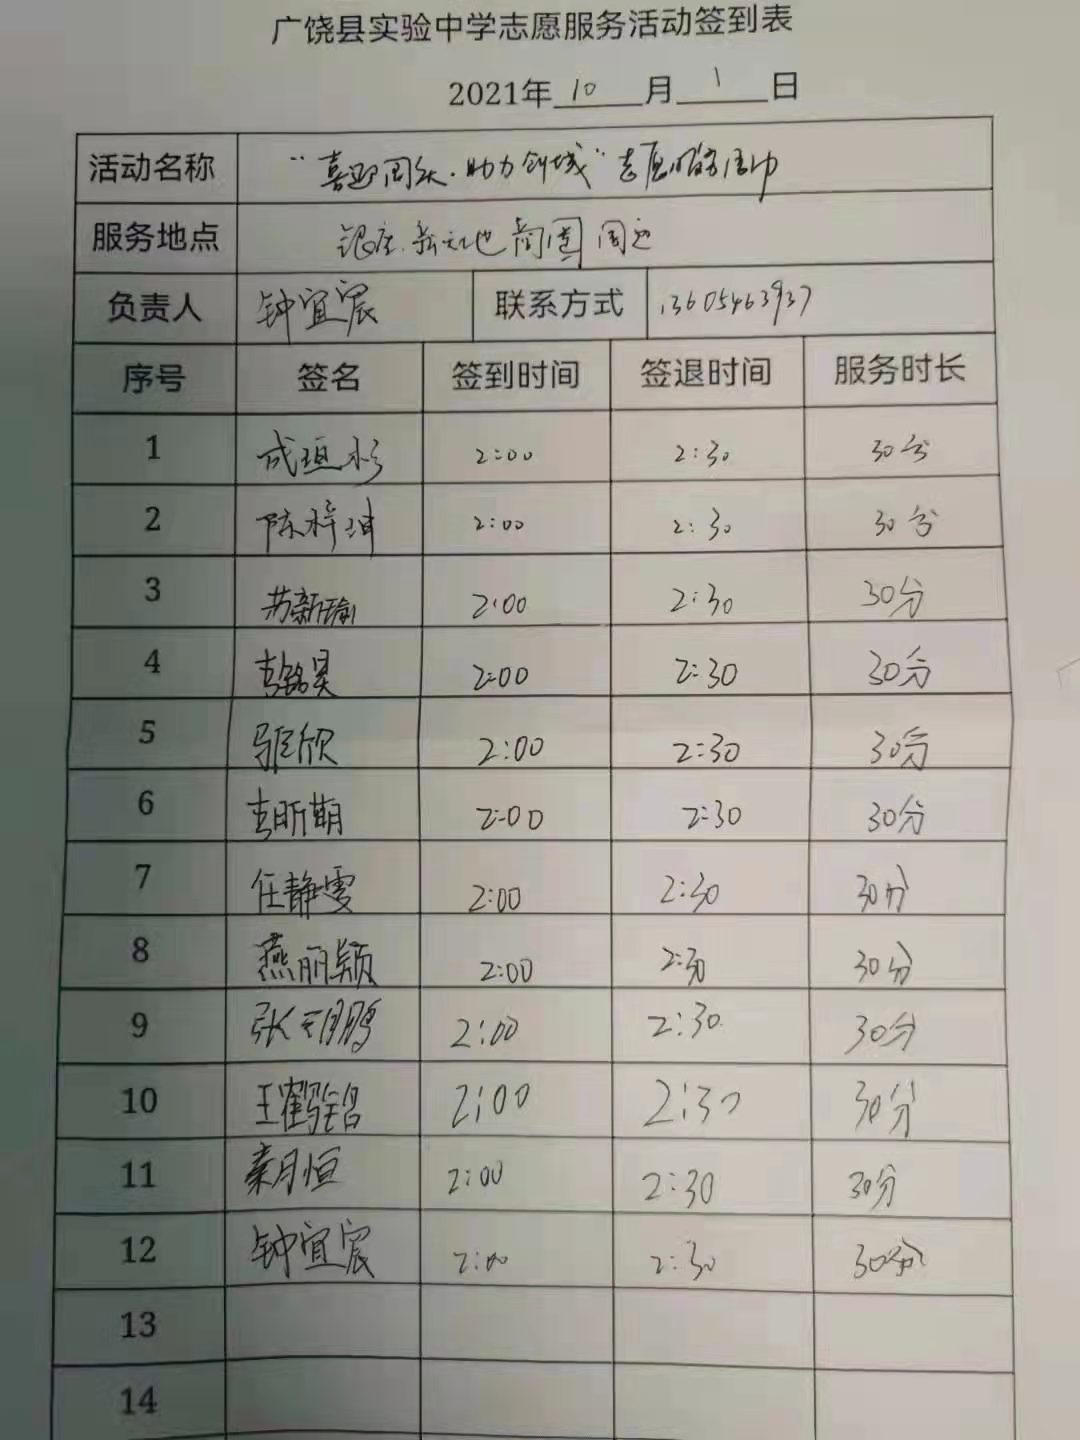 广饶县实验中学志愿服务活动签到表
2021年 10 月 1 日
活动名称 “喜迎国庆·助力创城”志愿服务活动
服务地点 银座.新天地商圈周边
负责人 钟宜宸 联系方式 13605463937
序号 签名 签到时间 签退时间 服务时长
1 成垣杉 2:00 2:30 30分
2 陈梓坤 2:00 2:30 30分
3 苏新瑜 2:00 2:30 30分
4 李铭昊 2:00 2:30 30分
5 欣 2:00 2:30 30分
6 李昕萌 2:00 2:30 30分
7 任静雯 2:00 2:30 30分
8 燕丽颖 2:00 2:30 30分
9 张鹏 2:00 2:30 30分
10 王鹤 2:00 2:30 30分
11 秦月恒 2:00 2:30 30分
12 钟宜宸 2:00 2:30 30分
13
14